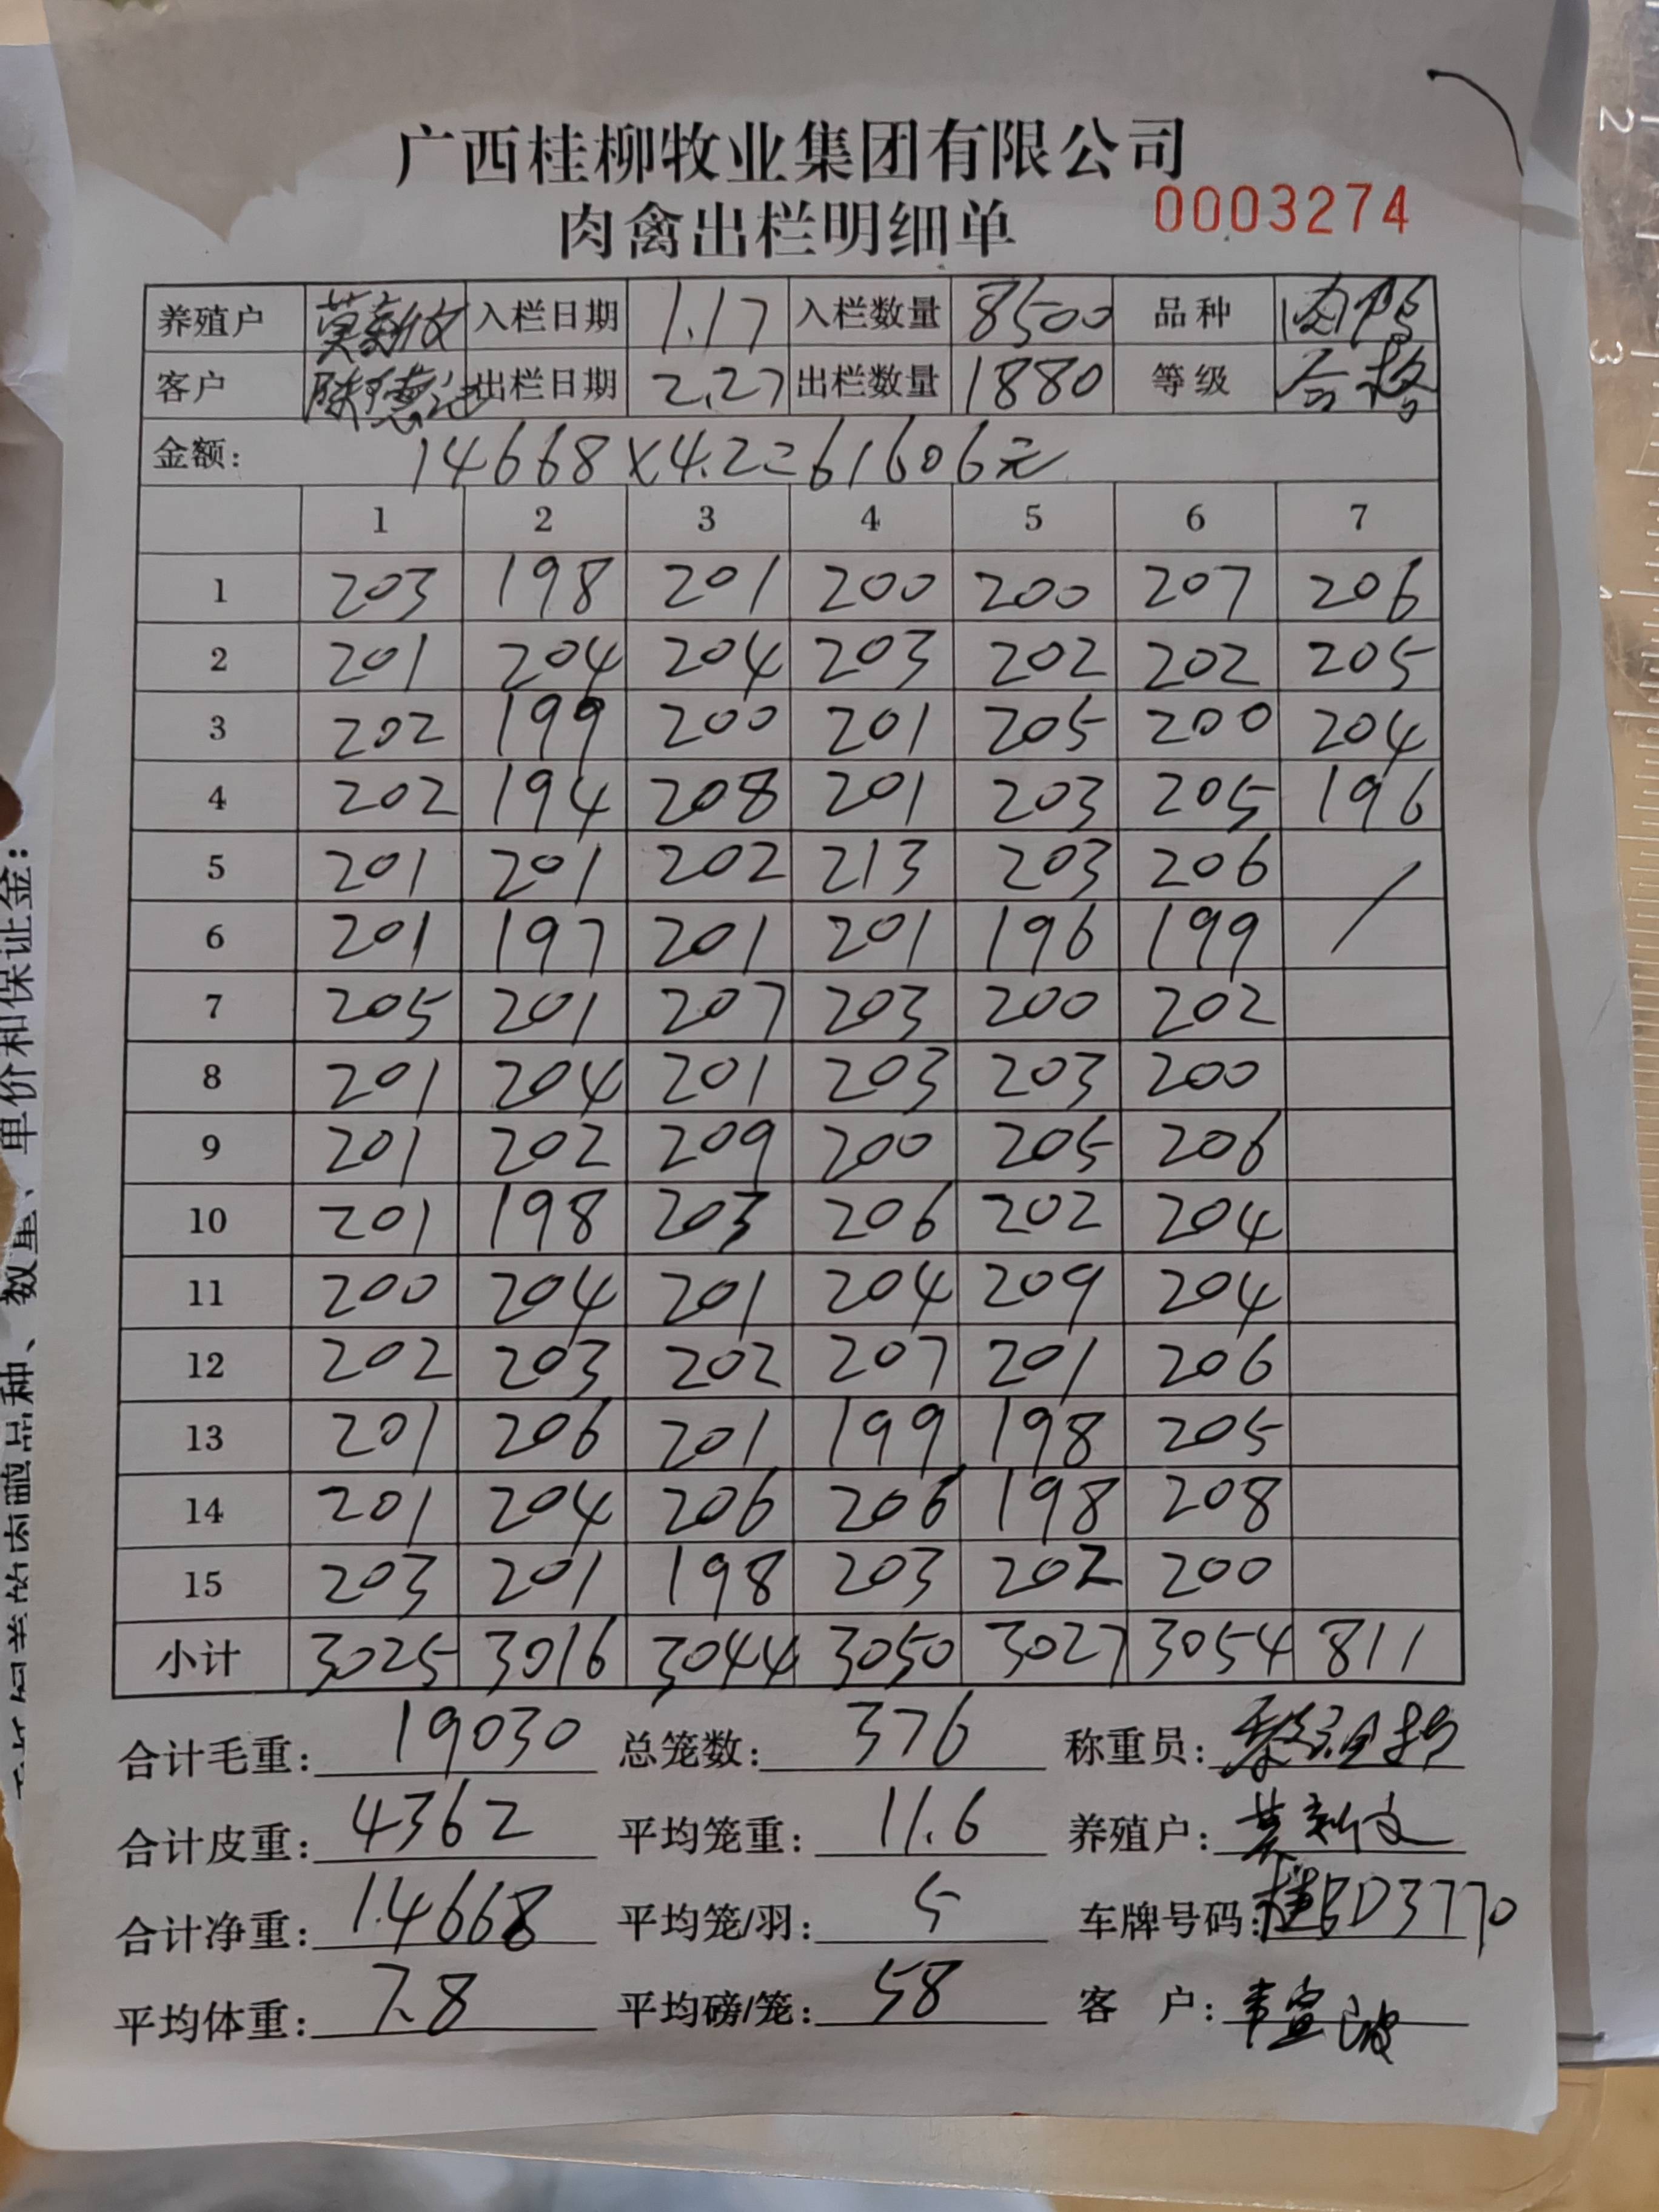 广西桂柳牧业集团有限公司
肉禽出栏明细单 0003274
养殖户 莫新文 入栏日期 1.17 入栏数量 8500 品种 肉鸭
客户 陈德 出栏日期 2.27 出栏数量 1880 等级 合格
金额: 14668×4.2=61606元
1 2 3 4 5 6 7
1 203 198 201 200 200 207 206
2 201 204 204 203 202 202 205
3 202 199 200 201 205 200 204
4 202 194 208 201 203 205 196
5 201 201 202 213 203 206 /
6 201 197 201 201 196 199
7 205 201 207 203 200 202
8 201 204 201 203 203 200
9 201 202 209 200 205 206
10 201 198 203 206 202 204
11 200 204 201 204 209 204
12 202 203 202 207 201 206
13 201 206 201 199 198 205
14 201 204 206 206 198 208
15 203 201 198 203 202 200
小计 3025 3016 3044 3050 3027 3054 811
合计毛重: 19030 总笼数: 376 称重员:
合计皮重: 4362 平均笼重: 11.6 养殖户: 莫新文
合计净重: 14668 平均笼/羽: 5 车牌号码: 桂BD3770
平均体重: 7.8 平均磅/笼: 58 客 户: 韦宣波
单价和保证金: